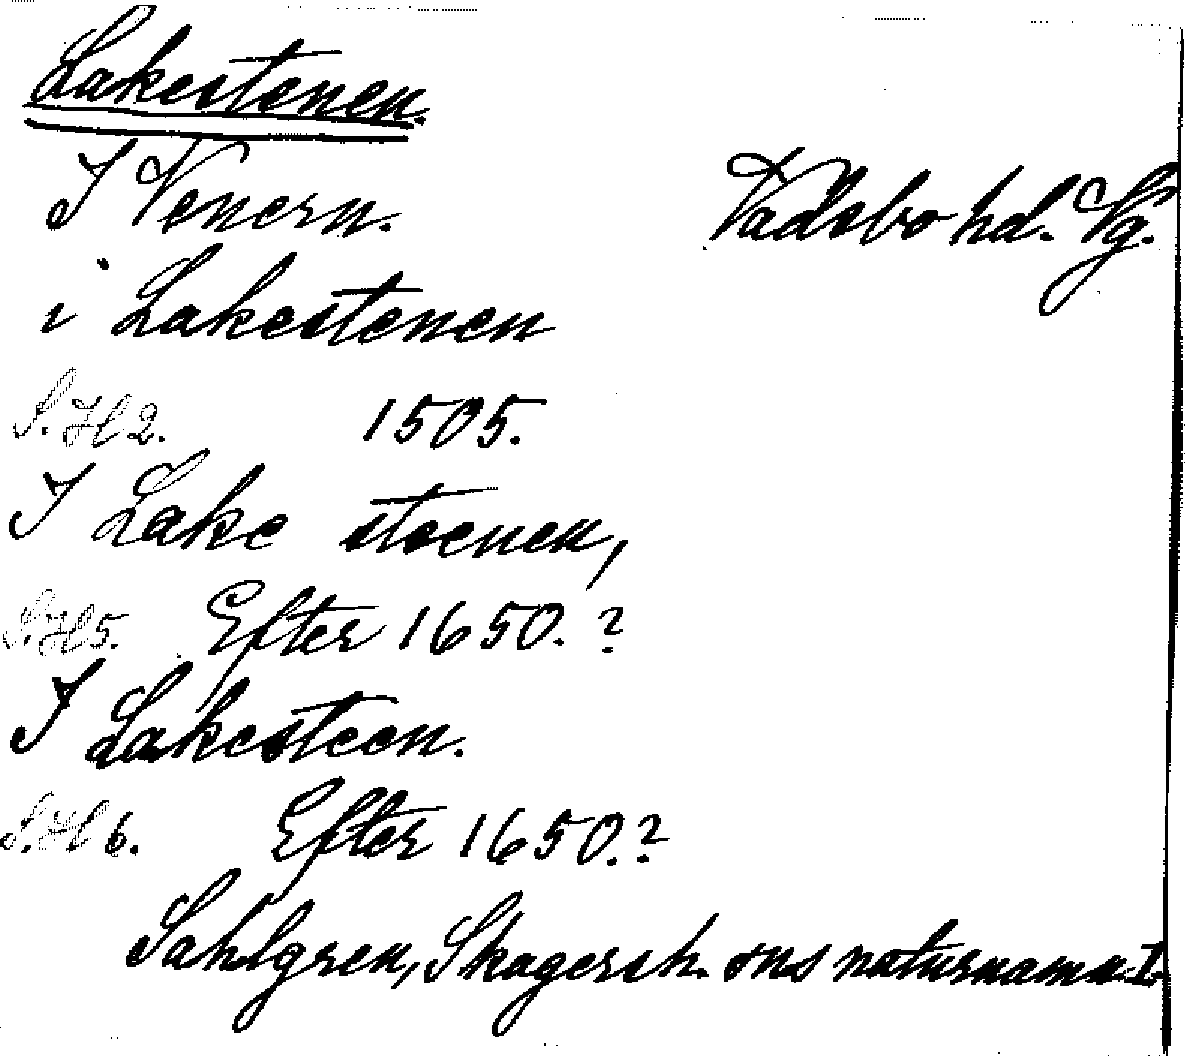 Lakestenen.
I Venern. Vadsbo hd. Vg.
i Lakestenen
S.H 2. 1505.
I Lake steenen,
S.H 5. Efter 1650.?
I Lakesteen.
S.H 6. Efter 1650.?
Sahlgren, Skagersh. sns naturnamn I.